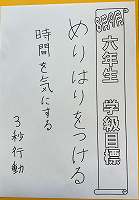 六年生 学級目標
めりはりをつける
時間を気にする
3秒行動